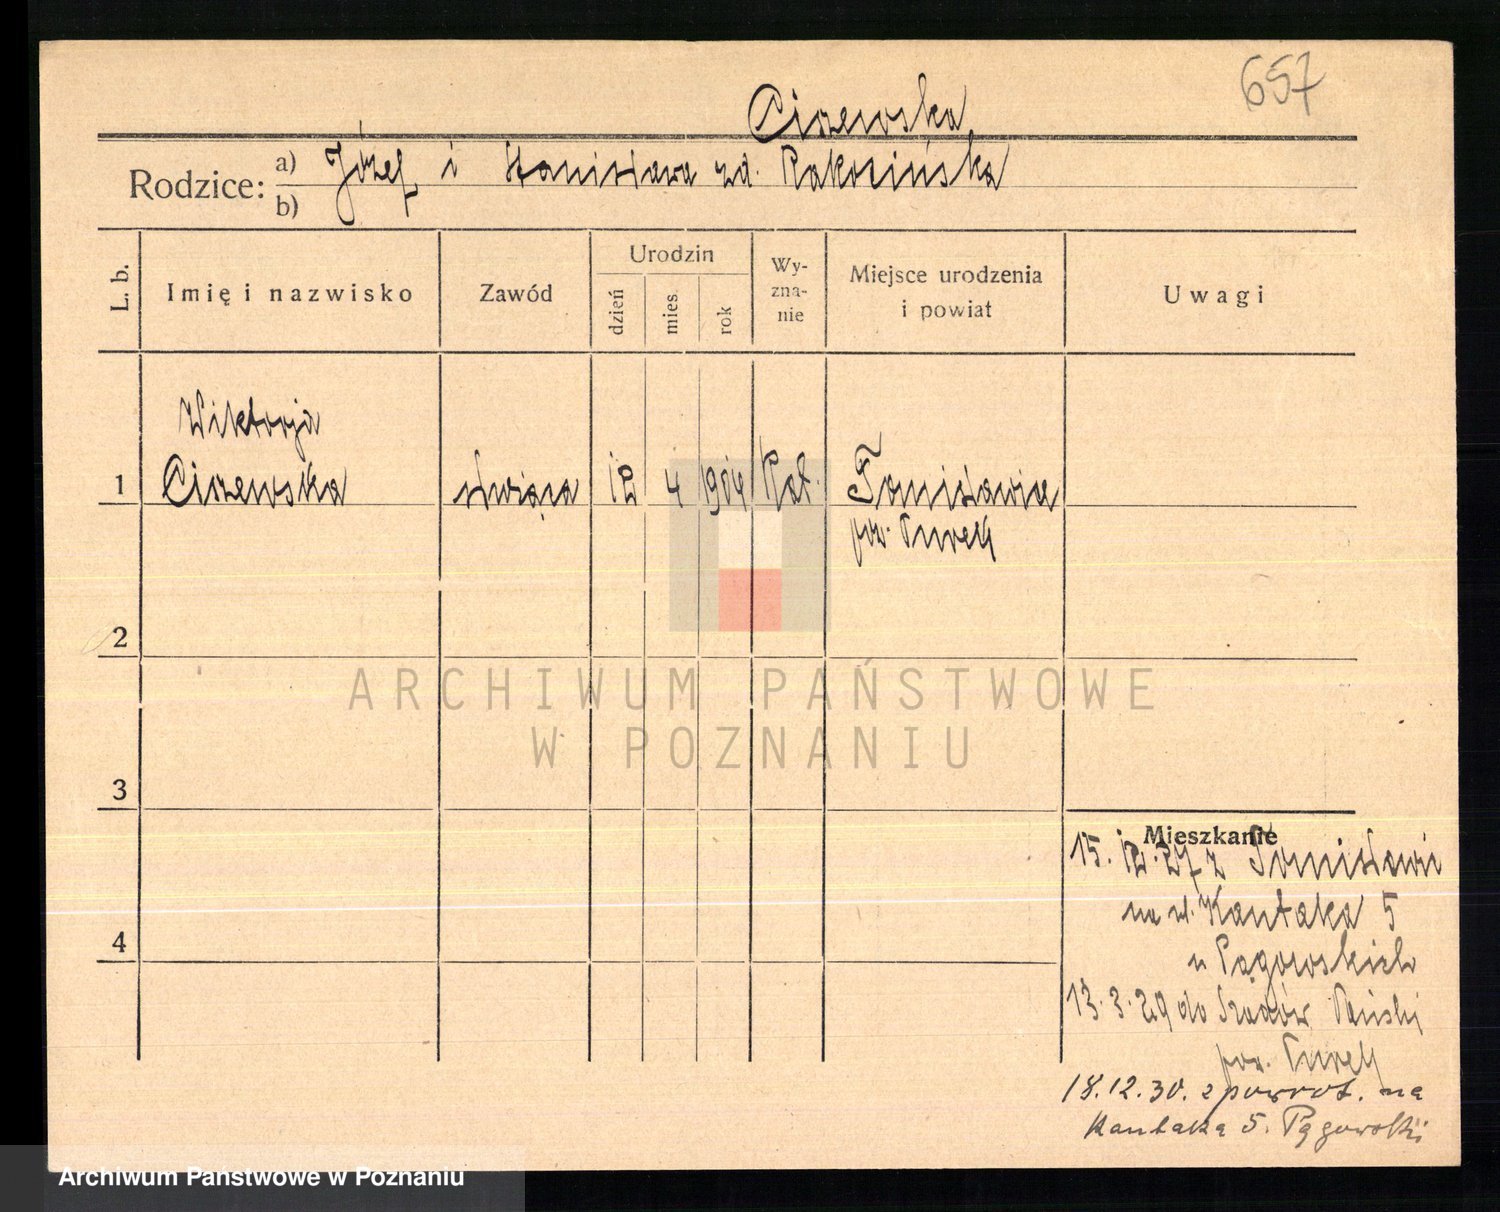 657
Ciszewska
Rodzice: a) Józef i Stanisława zd. Rakocińska
b)
L. b. Imię i nazwisko Zawód Urodzin dzień mies. rok Wyznanie Miejsce urodzenia i powiat Uwagi
Wiktorja
1 Ciszewska służąca 12 4 1904 Kat. Tomisławice
pow. Turek
2
ARCHIWUM PAŃSTWOWE
W POZNANIU
3
Mieszkanie
15. 12. 27 z Tomisławic
na ul. Kantaka 5
4
u Pągowskich
13.3.29 do Szadów Pański
pow. Turek
18.12.30. z powrot. na
Kantaka 5. Pągowskii
Archiwum Państwowe w Poznaniu